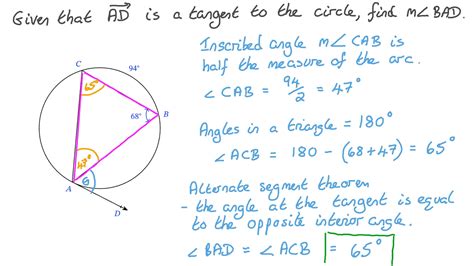 Given that AD is a tangent to the circle, find m∠BAD.
Inscribed angle m∠CAB is
half the measure of the arc.
∠CAB = 94/2 = 47°
Angles in a triangle = 180°
∠ACB = 180 - (68+47) = 65°
Alternate segment theorem
- the angle at the tangent is equal
to the opposite interior angle.
∠BAD = ∠ACB = 65°
C
94°
65°
68°
B
47°
A
θ
D